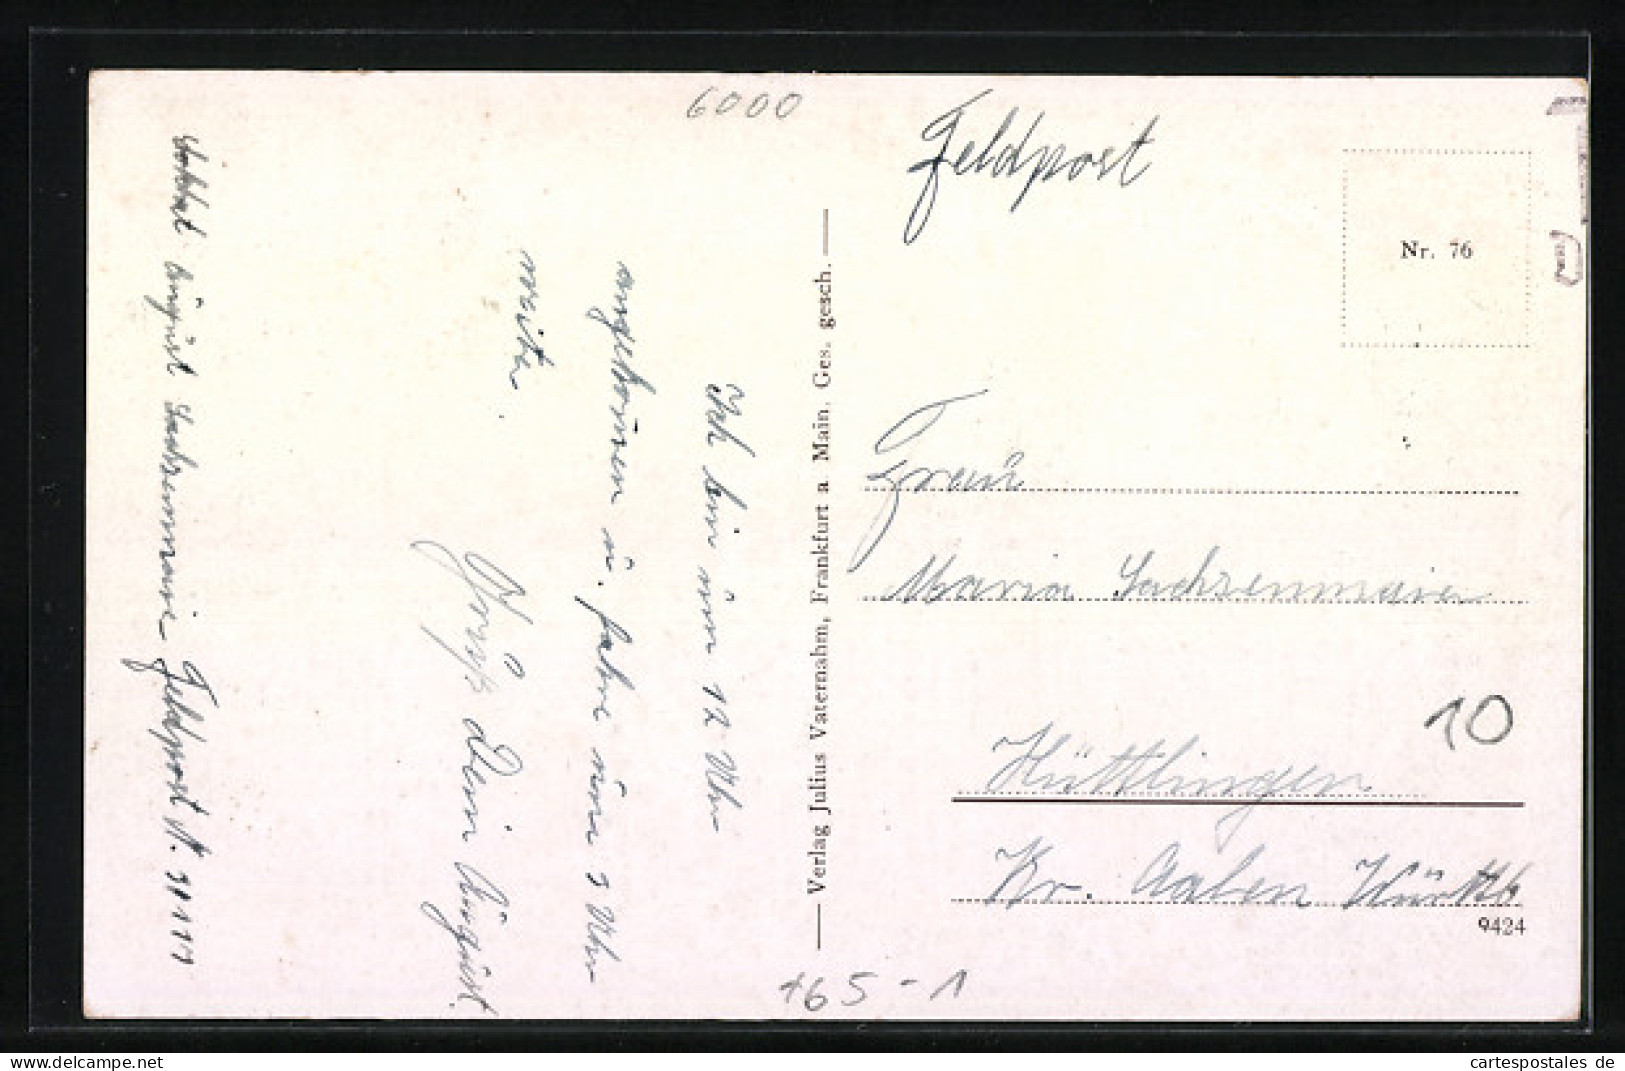 6000
Feldpost
Nr. 76
Soldat August Sachsenmaier Feldpost N.
Ich bin um 12 Uhr
angekommen u. fahre um 3 Uhr
weiter.
Gruß Dein August.
Verlag Julius Vaternahm, Frankfurt a Main. Ges. gesch.
Frau
Maria Sachsenmaier
Hüttlingen
10
Kr. Aalen Württb
9424
+65-1
hippostcard
cartespostales de